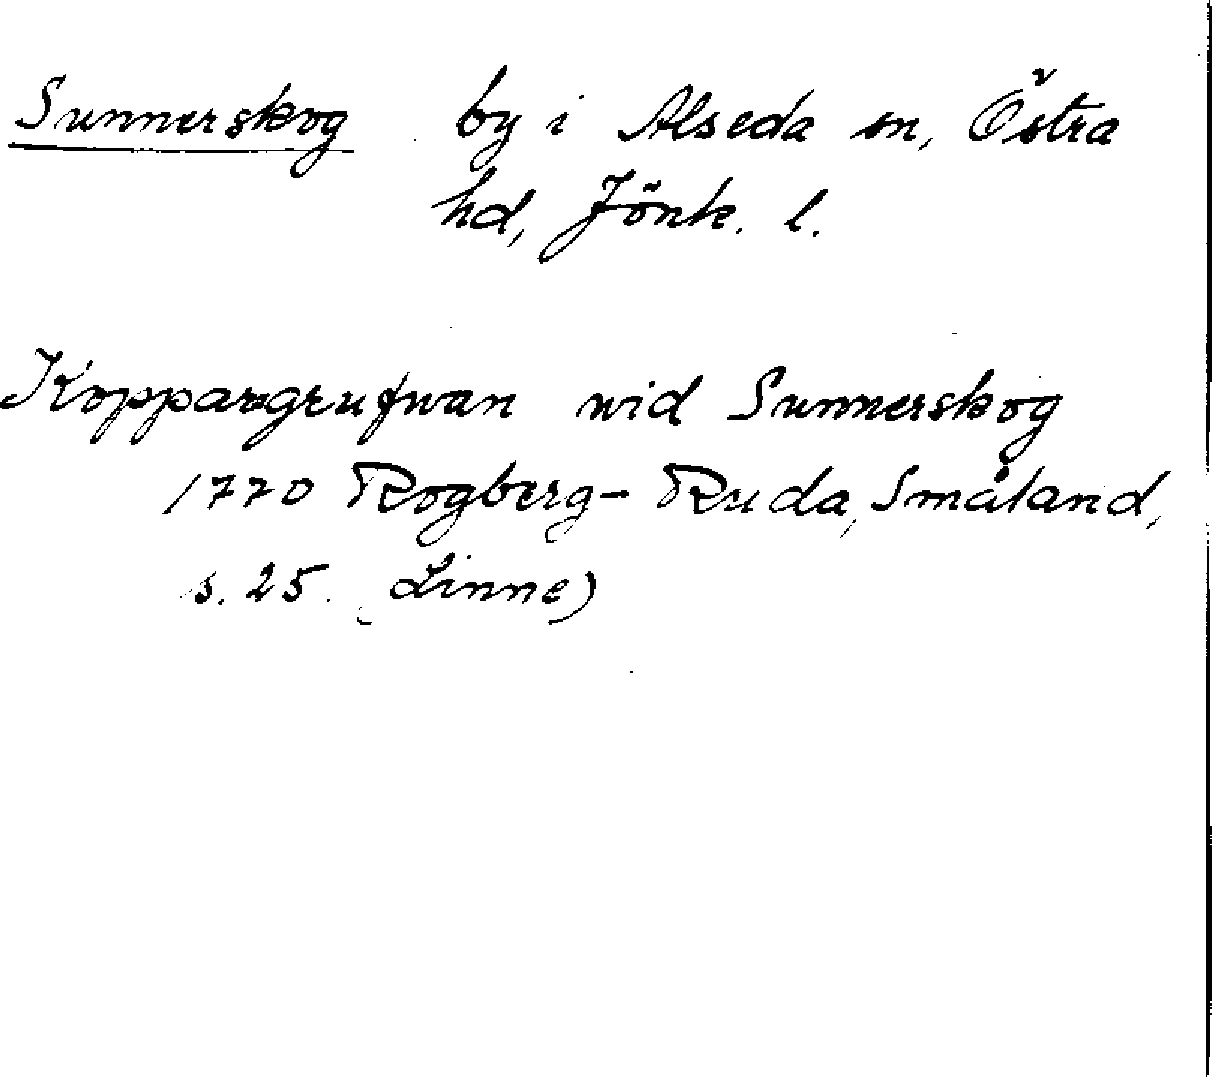 Sunnerskog by i Alseda sn, Östra
hd, Jönk. l.
Koppargrufwan wid Sunnerskog
1770 Rogberg-Ruda, Småland,
s. 25. (Linne)